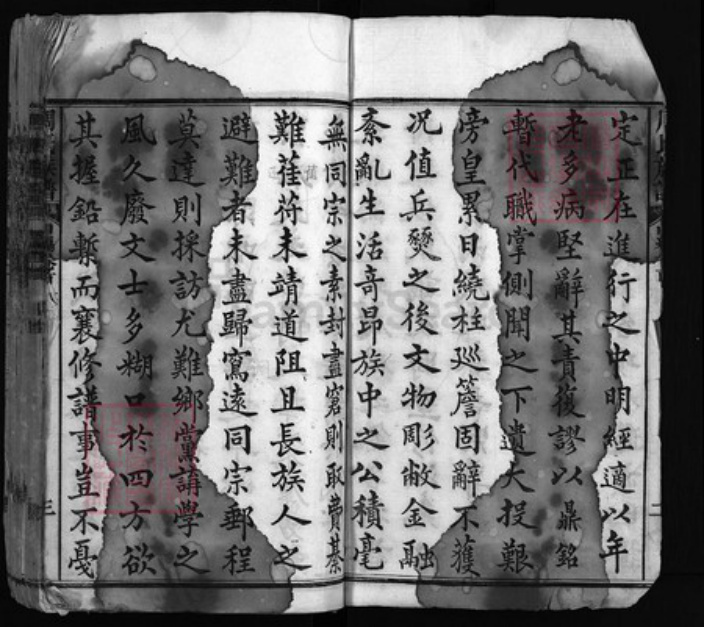 定正在進行之中明經適以年
老多病堅辭其責復謬以鼎銘
暫代職掌側聞之下遺大投艱
旁皇累日繞柱巡簷固辭不獲
况值兵燹之後文物彫敝金融
紊亂生活奇昂族中之公積毫
無同宗之素封盡窘則取費綦
難萑苻未靖道阻且長族人之
避難者未盡歸寫遠同宗郵程
莫達則採訪尤難鄉黨講學之
風久廢文士多糊口於四方欲
其握鉛槧而襄修譜事豈不戞
二
三